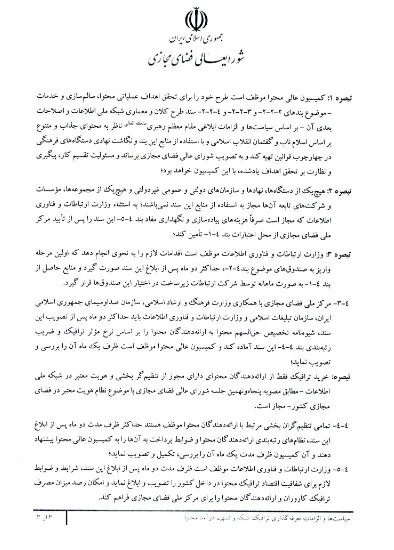 جمهوری اسلامی ایران
شورایعالی فضای مجازی
تبصره ۱: کمیسیون عالی محتوا موظف است طرح خود را برای تحقق اهداف عملیاتی محتوا، سالم‌سازی و خدمات
- موضوع بندهای ۲-۲-۲ و ۳-۲-۲ و ۴-۲-۲ سند طرح کلان و معماری شبکه ملی اطلاعات و اصلاحات
بعدی آن - بر اساس سیاست‌ها و الزامات ابلاغی مقام معظم رهبری ناظر به محتوای جذاب و متنوع
بر اساس اسلام ناب و گفتمان انقلاب اسلامی و با استفاده از منابع این بند و نگاشت نهادی دستگاه‌های فرهنگی
در چهارچوب قوانین تهیه کند و به تصویب شورای عالی فضای مجازی برساند و مسئولیت تقسیم کار، پیگیری
و نظارت بر تحقق اهداف یادشده با این کمیسیون خواهد بود؛
تبصره ۲: هیچ‌یک از دستگاه‌ها، نهادها و سازمان‌های دولتی و عمومی غیردولتی و هیچ‌یک از مجموعه‌ها، مؤسسات
و شرکت‌های تابعه آن‌ها مجاز به استفاده از منابع این سند نمی‌باشند؛ به استثناء وزارت ارتباطات و فناوری
اطلاعات که مجاز است صرفاً هزینه‌های پیاده‌سازی و نگهداری مفاد بند ۴-۵ این سند را پس از تأیید مرکز
ملی فضای مجازی از محل اعتبارات بند ۴-۱ تأمین کند؛
تبصره ۳: وزارت ارتباطات و فناوری اطلاعات موظف است اقدامات لازم را به نحوی انجام دهد که اولین مرحله
واریز به صندوق‌های موضوع بند ۴-۲، حداکثر دو ماه پس از ابلاغ این سند صورت گیرد و منابع حاصل از
بند ۴-۱ به صورت ماهانه توسط شرکت ارتباطات زیرساخت در اختیار این صندوق‌ها قرار گیرد.
۴-۳- مرکز ملی فضای مجازی با همکاری وزارت فرهنگ و ارشاد اسلامی، سازمان صداوسیمای جمهوری اسلامی
ایران، سازمان تبلیغات اسلامی و وزارت ارتباطات و فناوری اطلاعات باید حداکثر دو ماه پس از تصویب این
سند، شیوه‌نامه تخصیص حق‌السهم محتوا به ارائه‌دهندگان محتوا را بر اساس نرخ مؤثر ترافیک و ضریب
رتبه‌بندی بند ۴-۴ این سند آماده کند و کمیسیون عالی محتوا موظف است ظرف یک ماه آن را بررسی و
تصویب نماید؛
تبصره: خرید ترافیک فقط از ارائه‌دهندگان محتوای دارای مجوز از تنظیم‌گر بخشی و هویت معتبر در شبکه ملی
اطلاعات - مطابق مصوبه پنجاه‌ونهمین جلسه شورای عالی فضای مجازی با موضوع نظام هویت معتبر در فضای
مجازی کشور- مجاز است.
۴-۴- تمامی تنظیم‌گران بخشی مرتبط با ارائه‌دهندگان محتوا موظف هستند حداکثر ظرف مدت دو ماه پس از ابلاغ
این سند، نظام‌های رتبه‌بندی ارائه‌دهندگان محتوا و ضوابط پرداخت به آن‌ها را به کمیسیون عالی محتوا پیشنهاد
دهند و آن کمیسیون ظرف مدت یک ماه آن را بررسی، تکمیل و تصویب نماید؛
۴-۵- وزارت ارتباطات و فناوری اطلاعات موظف است ظرف مدت دو ماه پس از ابلاغ این سند، شرایط و ضوابط
لازم برای شفافیت اقتصاد ترافیک محتوا در داخل کشور را تصویب و ابلاغ نماید و امکان رصد میزان مصرف
ترافیک کاروران و ارائه‌دهندگان محتوا را برای مرکز ملی فضای مجازی فراهم کند.
سیاست‌ها و الزامات تعرفه‌گذاری ترافیک شبکه و تسهیم درآمد محتوا
۳ از ۴